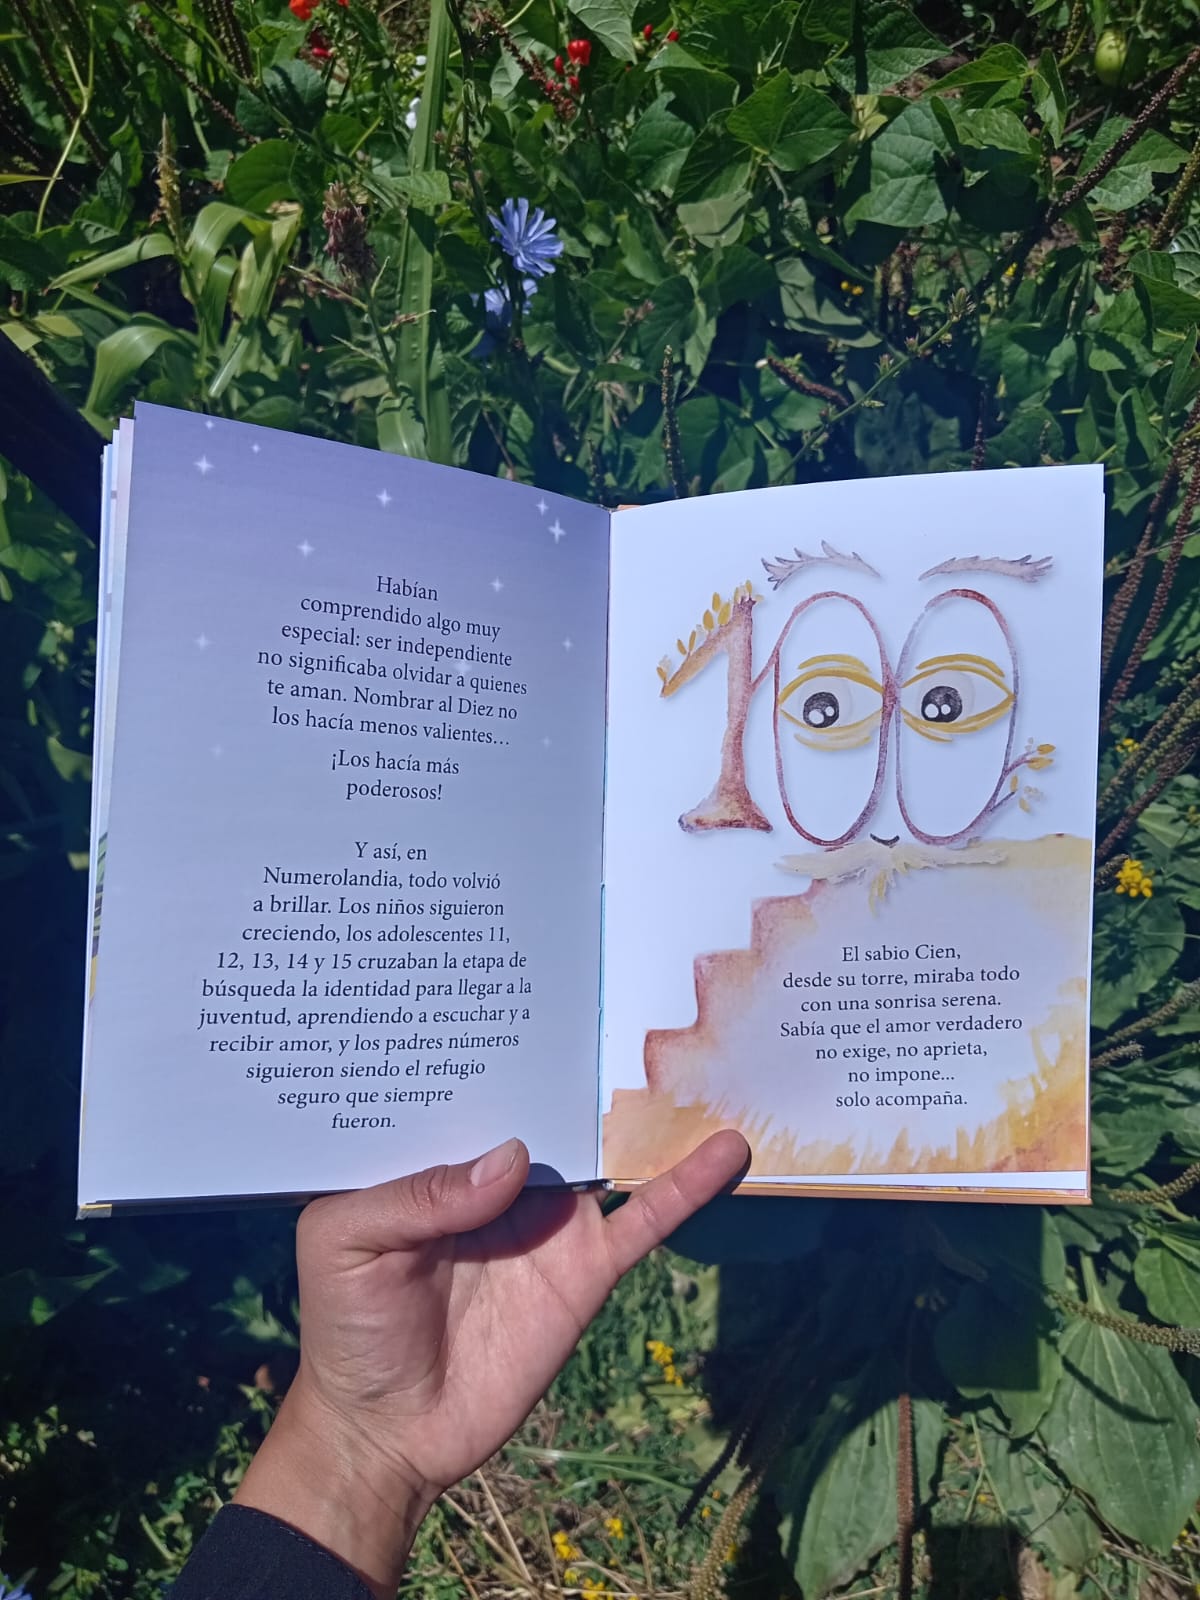 Habían
comprendido algo muy
especial: ser independiente
no significaba olvidar a quienes
te aman. Nombrar al Diez no
los hacía menos valientes...
¡Los hacía más
poderosos!
Y así, en
Numerolandia, todo volvió
a brillar. Los niños siguieron
creciendo, los adolescentes 11,
12, 13, 14 y 15 cruzaban la etapa de
búsqueda la identidad para llegar a la
juventud, aprendiendo a escuchar y a
recibir amor, y los padres números
siguieron siendo el refugio
seguro que siempre
fueron.
100
El sabio Cien,
desde su torre, miraba todo
con una sonrisa serena.
Sabía que el amor verdadero
no exige, no aprieta,
no impone...
solo acompaña.